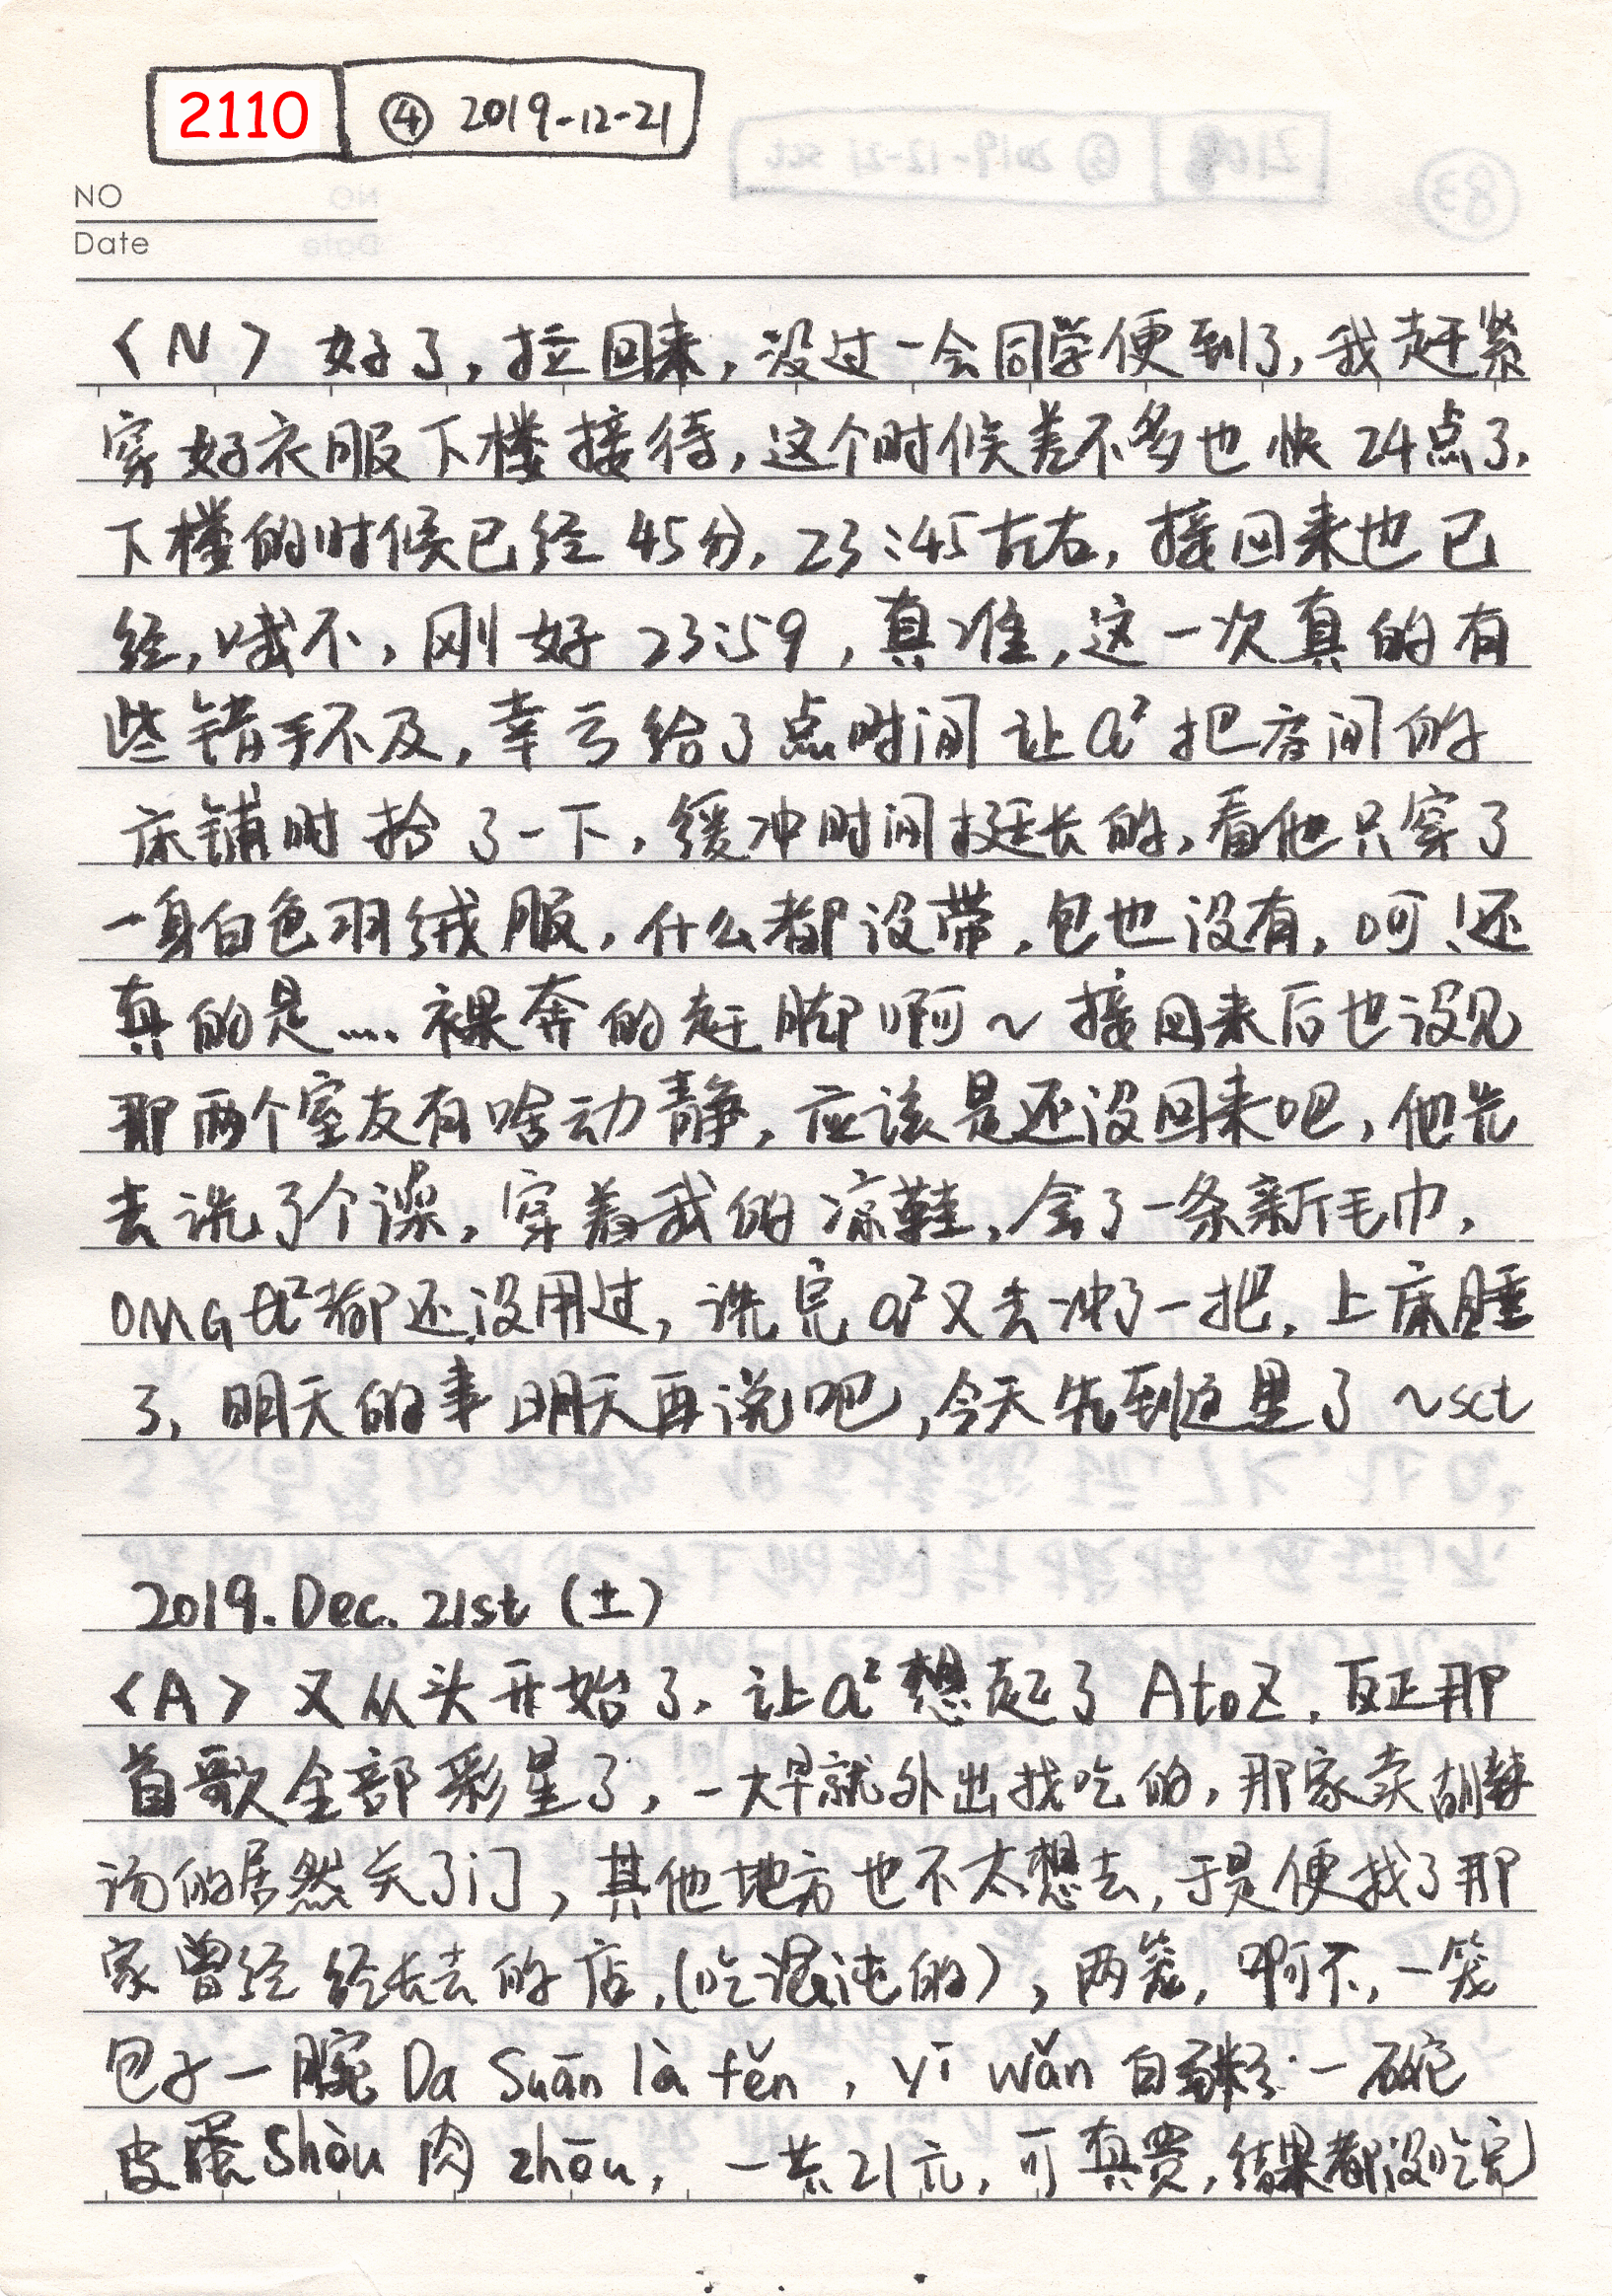 2110 ④ 2019-12-21
NO
Date
〈N〉好了,拉回来,没过一会同学便到了,我赶紧
穿好衣服下楼接待,这个时候差不多也快24点了,
下楼的时候已经45分,23:45左右,接回来也已
经,哦不,刚好23:59,真准,这一次真的有
些错手不及,幸亏给了点时间让a²把房间的
床铺时拾了一下,缓冲时间挺长的,看他只穿了
一身白色羽绒服,什么都没带,包也没有,呵!还
真的是....裸奔的赶脚啊~接回来后也没见
那两个室友有啥动静,应该是还没回来吧,他先
去洗了个澡,穿着我的凉鞋,拿了一条新毛巾,
OMG a²都还没用过,洗完a²又去冲了一把,上床睡
了,明天的事明天再说吧,今天先到这里了~sct
2019.Dec.21st(土)
〈A〉又从头开始了,让a²想起了AtoZ,反正那
首歌全部彩星了,一大早就外出找吃的,那家卖胡辣
汤的居然关了门,其他地方也不太想去,于是便找了那
家曾经经长去的店,(吃混沌的),两笼,啊不,一笼
包子一腕Da Suān là fěn,yī wǎn白粥一碗
皮蛋Shòu肉zhōu,一共21元,可真贵,结果都没吃完